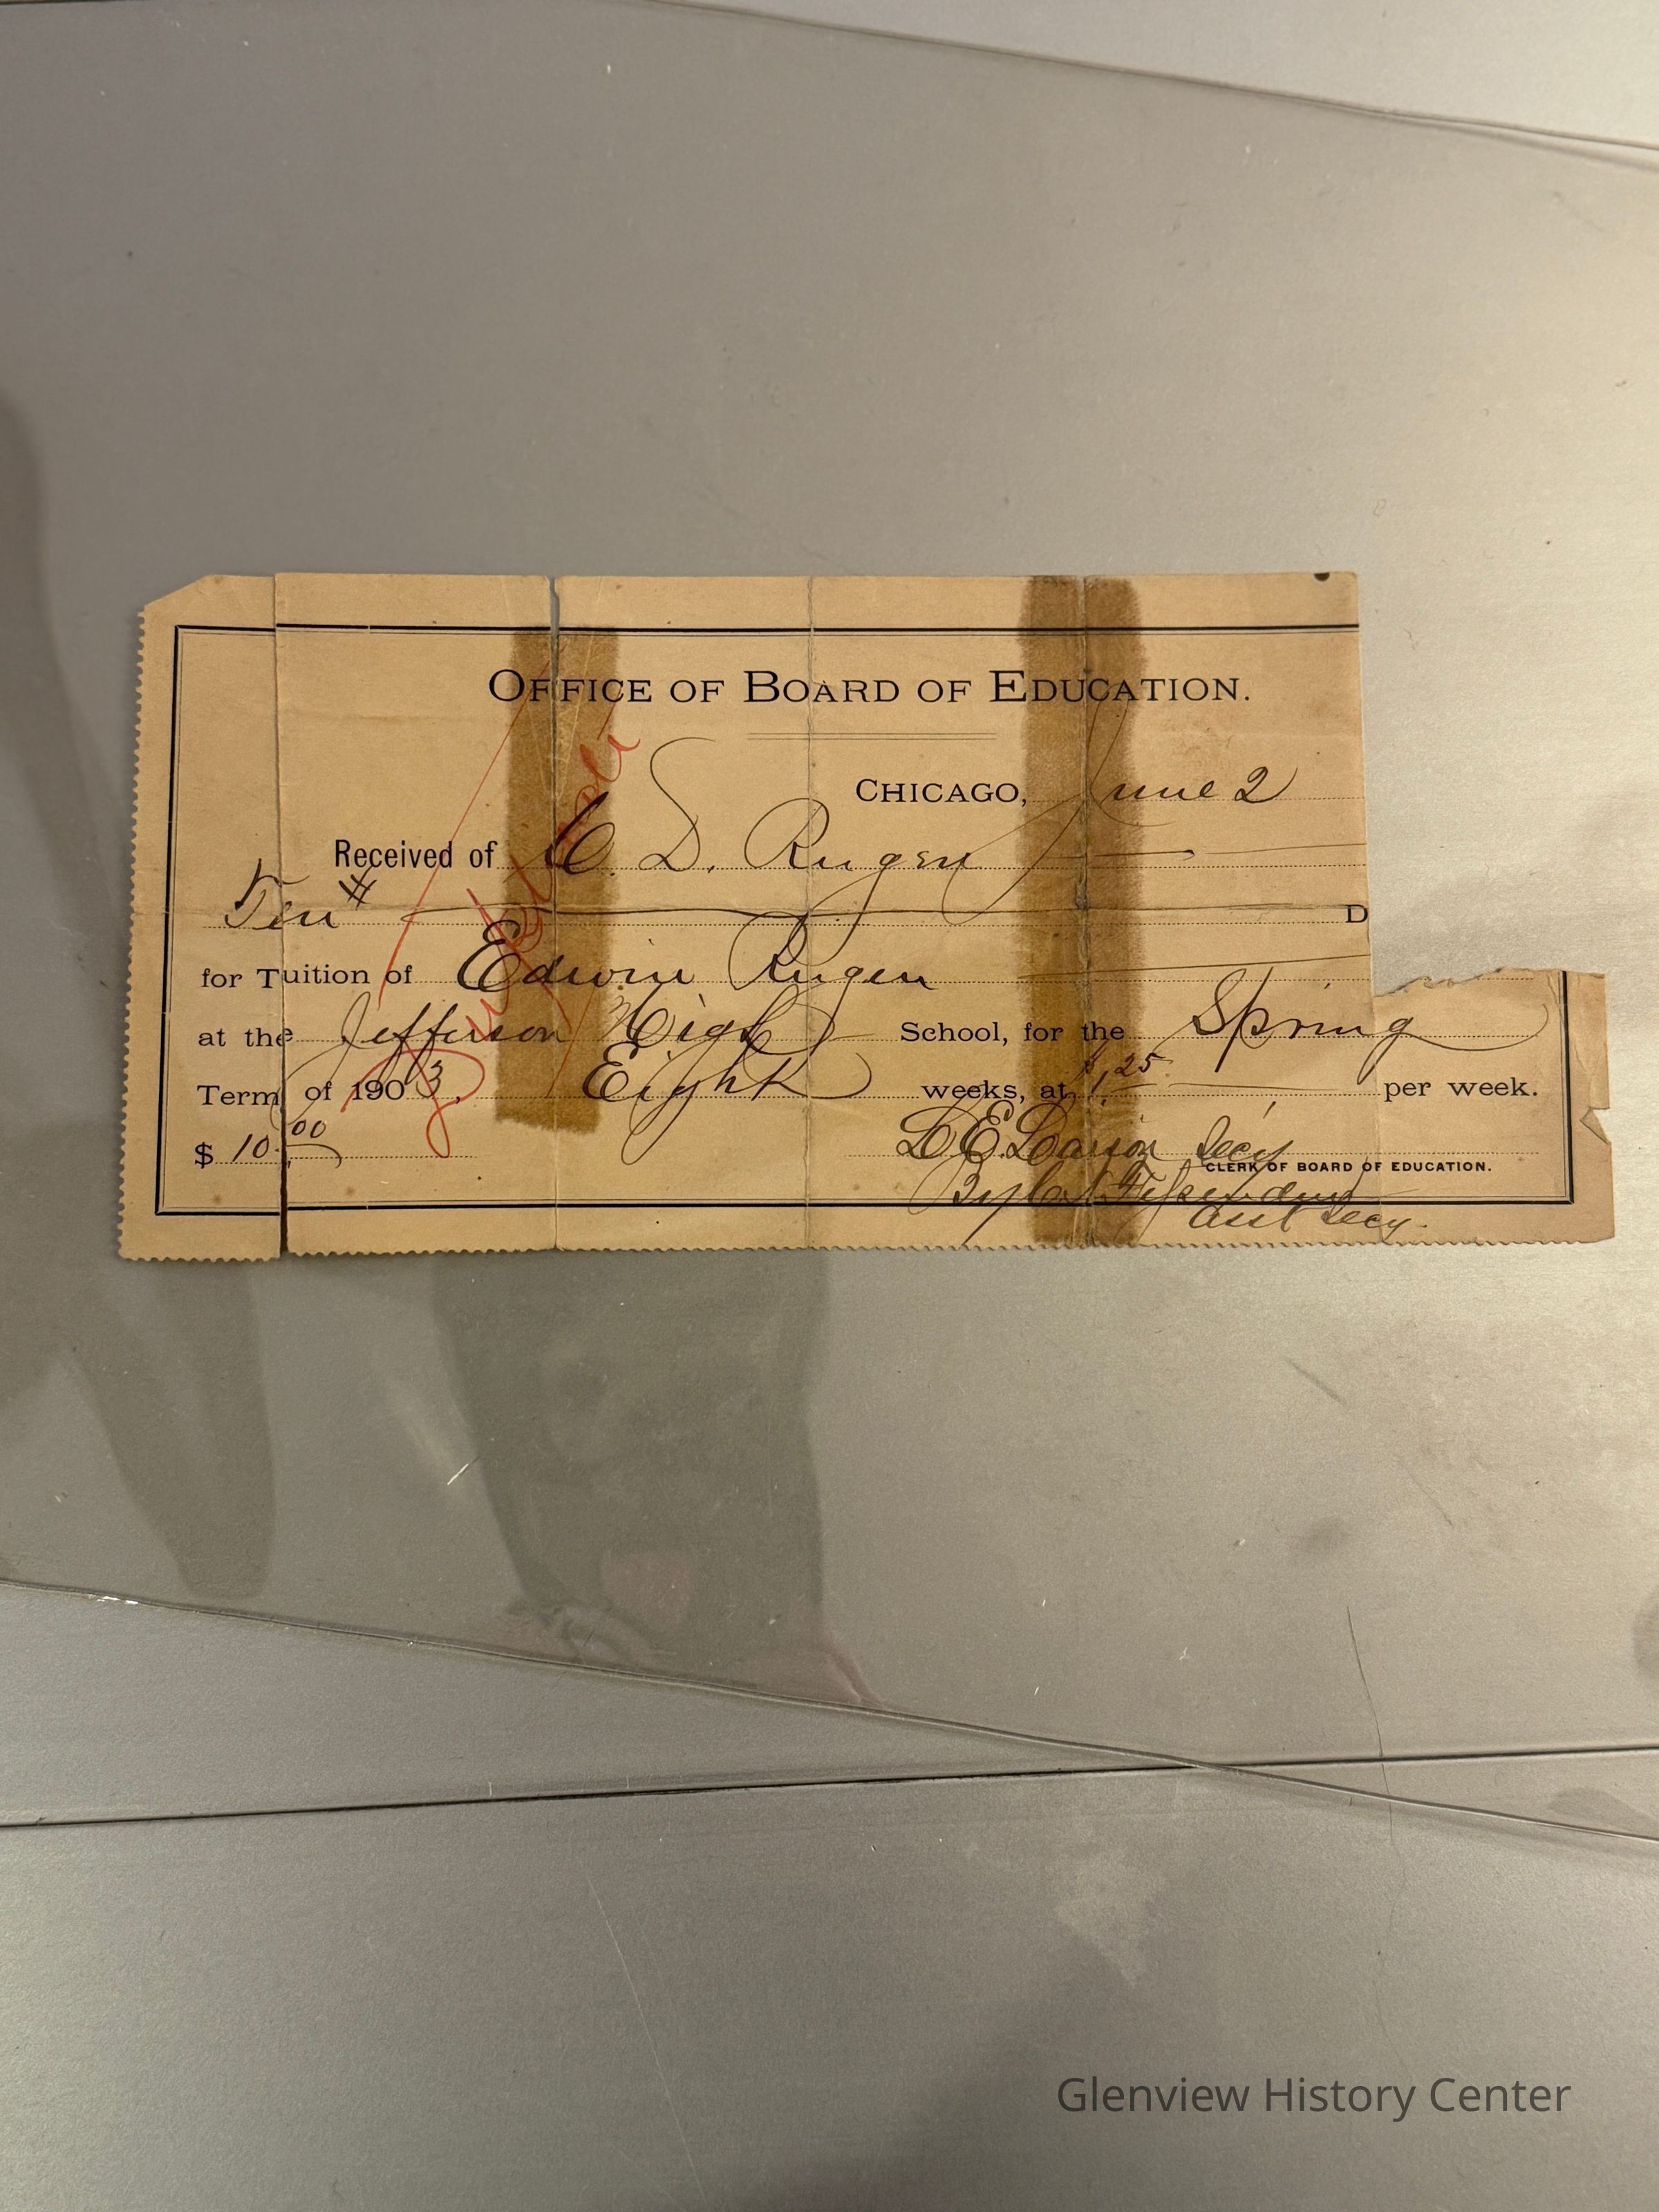 OFFICE OF BOARD OF EDUCATION.
CHICAGO, June 2
Received of C. D. Rugen
Ten # D
for Tuition of Edwin Rugen
at the Jefferson High School, for the Spring
Term of 1903. Eight weeks, at $1.25 per week.
$ 10.00 L. E. Larson Secy
CLERK OF BOARD OF EDUCATION.
Asst Secy.
Duplicate
Glenview History Center